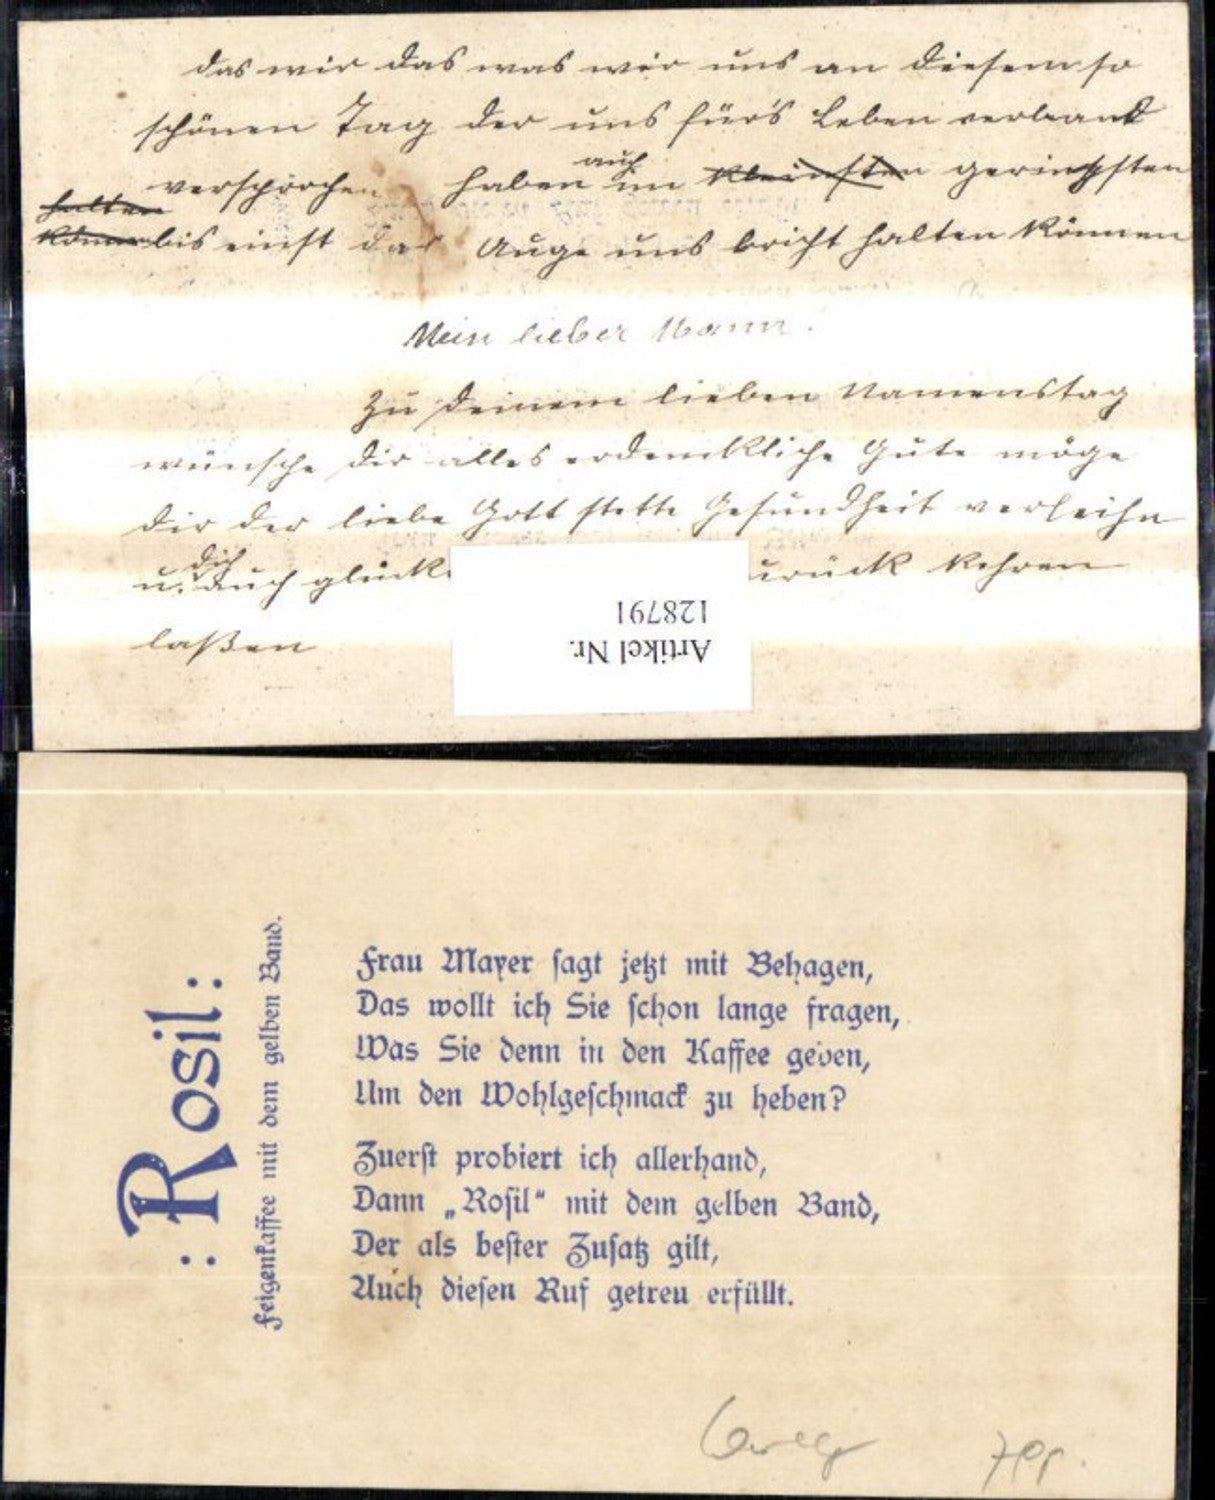 das wir das was wir uns an diesem so
schönen Tag der uns für's Leben verband
versprochen haben auch im kleinsten geringsten
halten
könn bis einst das Auge uns bricht halten können
Mein lieber Mann!
Zu deinem lieben Namenstag
wünsche dir alles erdenkliche Gute möge
dir der liebe Gott stette Gesundheit verleihn
u. dich auch glückl urück kehren
laßen
Artikel Nr.
128791
: Rosil :
Feigenkaffee mit dem gelben Band.
Frau Mayer sagt jetzt mit Behagen,
Das wollt ich Sie schon lange fragen,
Was Sie denn in den Kaffee geben,
Um den Wohlgeschmack zu heben?
Zuerst probiert ich allerhand,
Dann „Rosil“ mit dem gelben Band,
Der als bester Zusatz gilt,
Auch diesen Ruf getreu erfüllt.